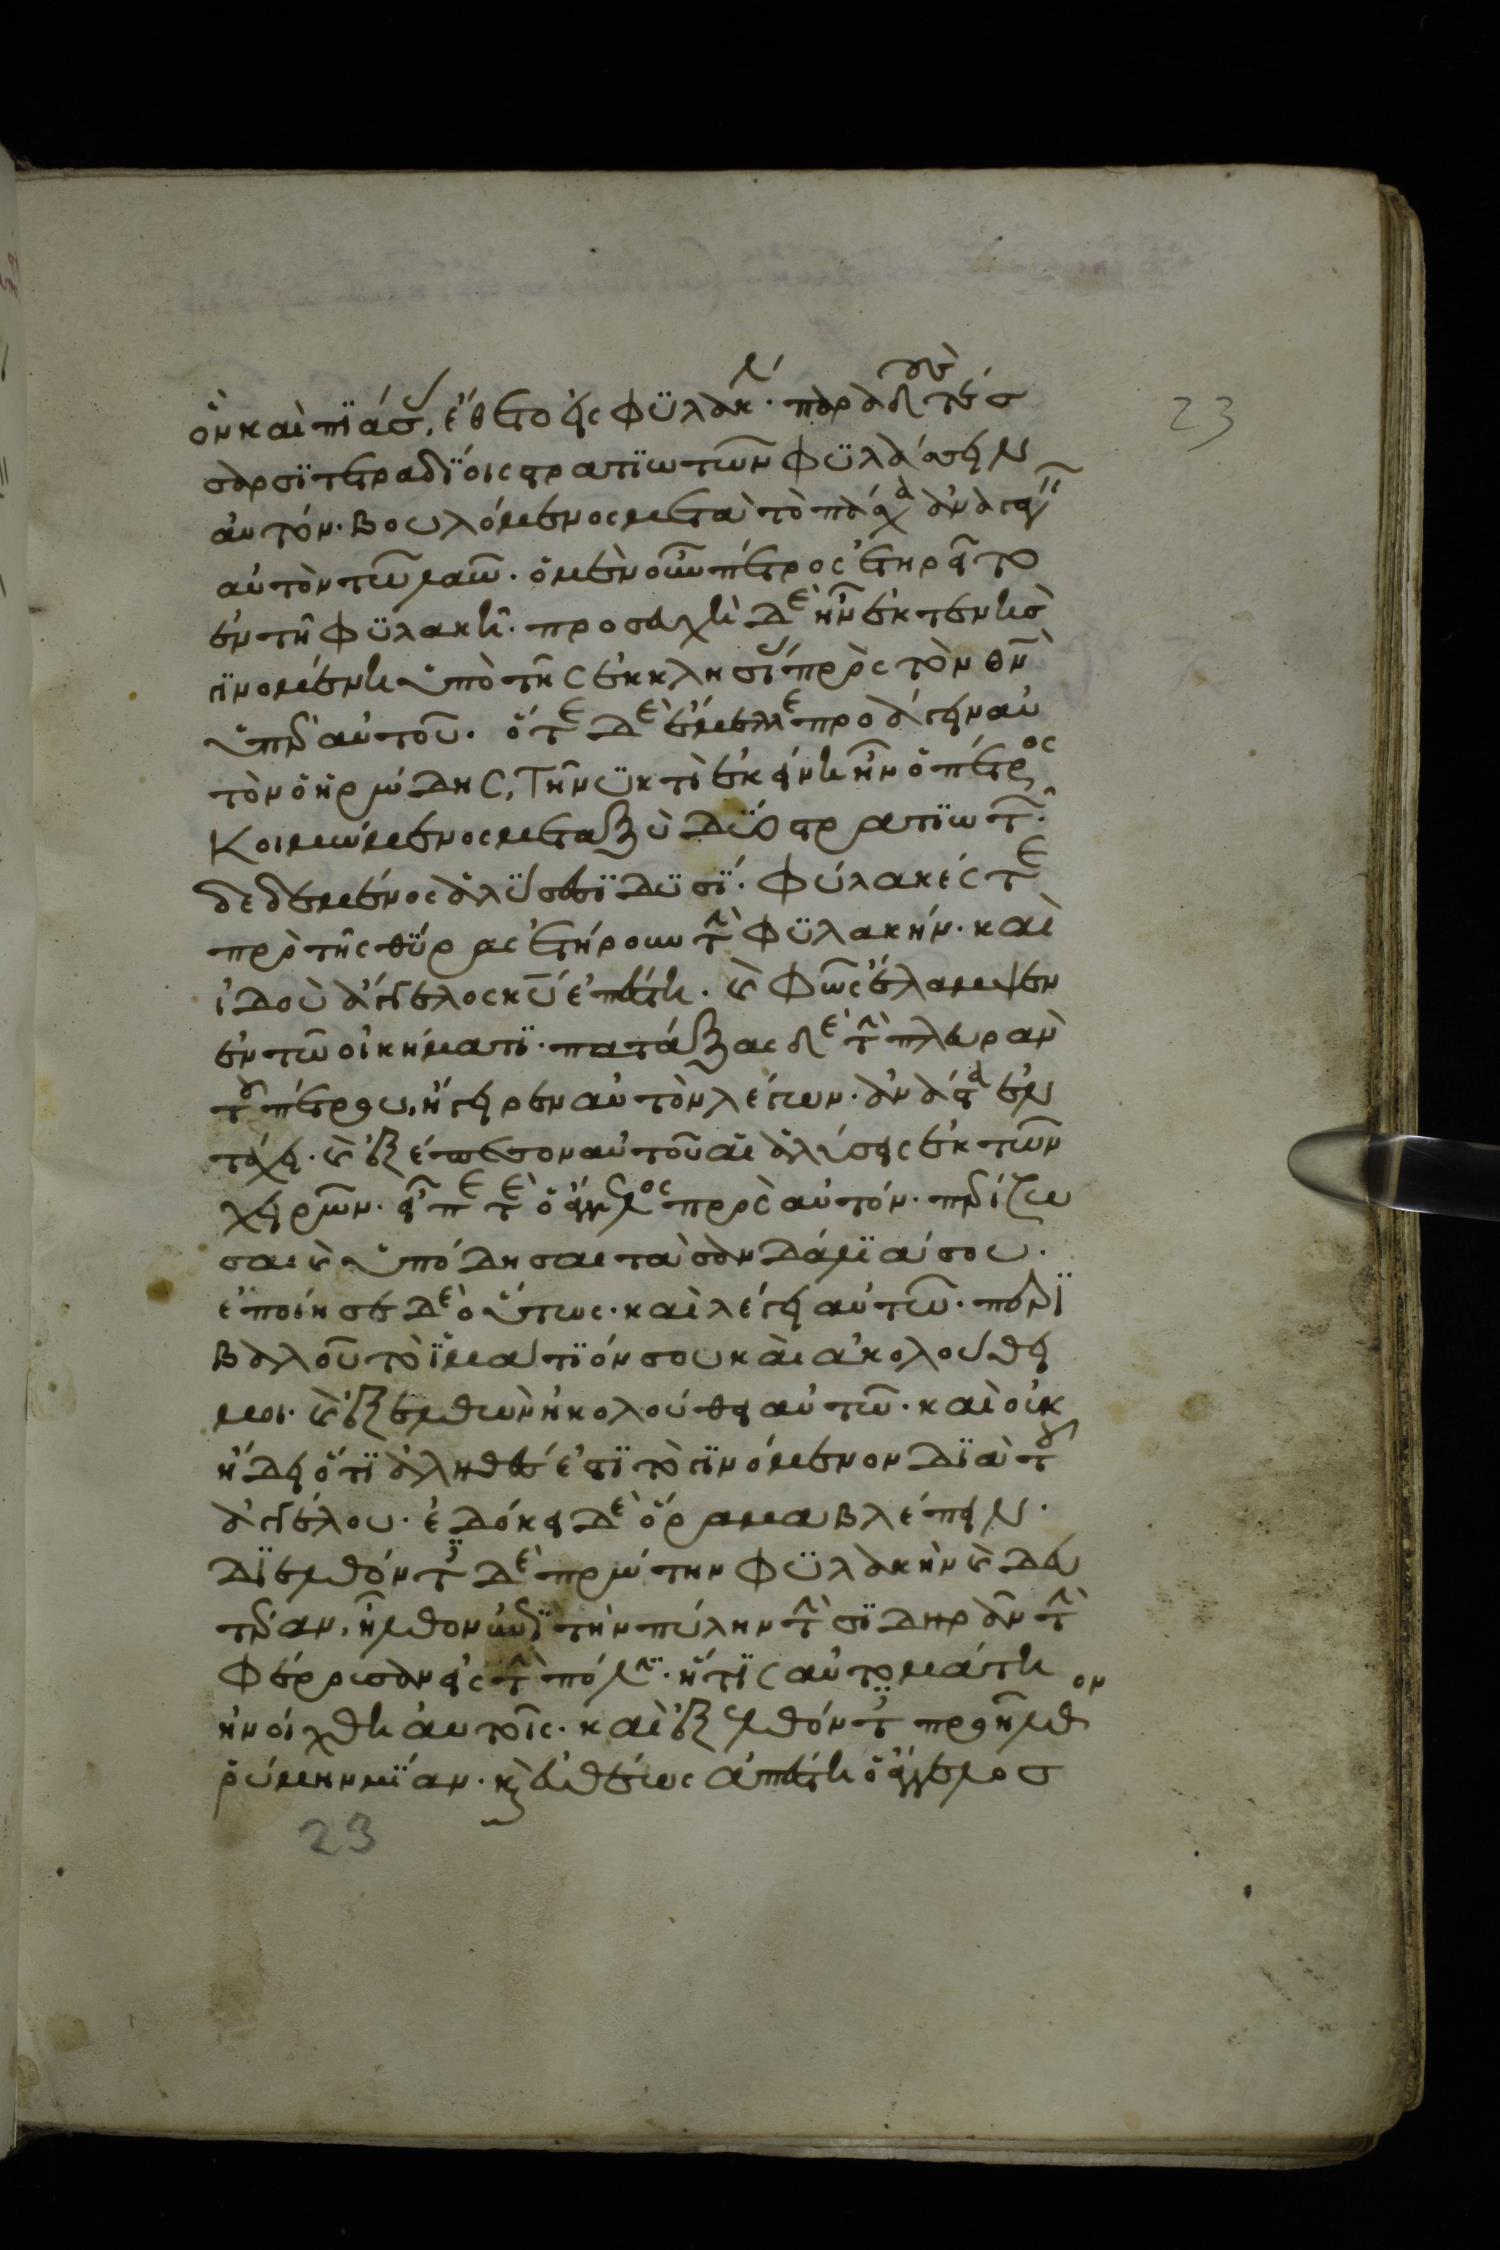 ὃν καὶ πϊάσ(ας), ἔθετο εἰς φϋλακ(ήν)· παραδοὺς τέσ
σαρσϊ τετραδΐοις στρατϊωτῶν φϋλάσσειν
αὐτόν· βουλόμενος μετὰ τὸ πάσχα ἀναγαγεῖν
αὐτὸν τῶ λαῶ· ὁ μὲν οὖν πέτρος ἐτηρεῖτο
ἐν τῆ φϋλακῆ· προσευχὴ δὲ ἦν ἐκτενὴς
γϊνομένη ὑπὸ τῆς ἐκκλησΐας πρὸς τὸν θν̄
ὑπὲρ αὐτοῦ· ὅτε δὲ ἔμελλε προάγειν αὐ
τὸν ὁ ἡρώδης, τῆ νϋκτὶ ἐκείνη ἦν ὁ πέτρος
κοιμώμενος μεταξὺ δΰο στρατϊωτῶν·
δεδεμένος ἁλΰσεσϊ δϋσΐ· φύλακές τε
πρὸ τῆς θΰρας ἐτήρουν τὴν φϋλακήν· καὶ
ἰδοὺ ἄγγελος κῡ ἐπέστη· καὶ φῶς ἔλαμψεν
ἐν τῶ οἰκήματϊ· πατάξας δὲ τὴν πλευρὰν
τοῦ πέτρου, ἤγειρεν αὐτὸν λέγων· ἀνάστα ἐν
τάχει· καὶ ἐξέπεσον αὐτοῦ αἱ ἁλύσεις ἐκ τῶν
χειρῶν· εἶπέ τε ὁ ἄγγελος πρὸς αὐτόν· περίζω
σαι καὶ ὑπόδησαι τὰ σανδάλϊά σου·
ἐποίησε δὲ οὕτως· καὶ λέγει αὐτῶ· περϊ
βαλοῦ τὸ ἱμάτϊόν σου καὶ ἀκολούθει
μοι· καὶ ἐξελθὼν ἠκολούθει αὐτῶ· καὶ οὐκ
ἤδει ὅτϊ ἀληθές ἐστϊ τὸ γϊνόμενον δϊὰ τοῦ
ἀγγέλου· ἐδόκει δὲ ὅραμα βλέπειν·
δϊελθόντες δὲ πρώτην φϋλακὴν καὶ δευ
τέραν, ἦλθον ἐπϊ τὴν πύλην τὴν σϊδηρᾶν τὴν
φέρουσαν εἰς τὴν πόλϊν· ἥτϊς αὐτομάτη
ἠνοίχθη αὐτοῖς· καὶ ἐξελθόντες προῆλθον
ῥύμην μΐαν· καὶ εὐθέως ἀπέστη ὁ ἄγγελος
23
23